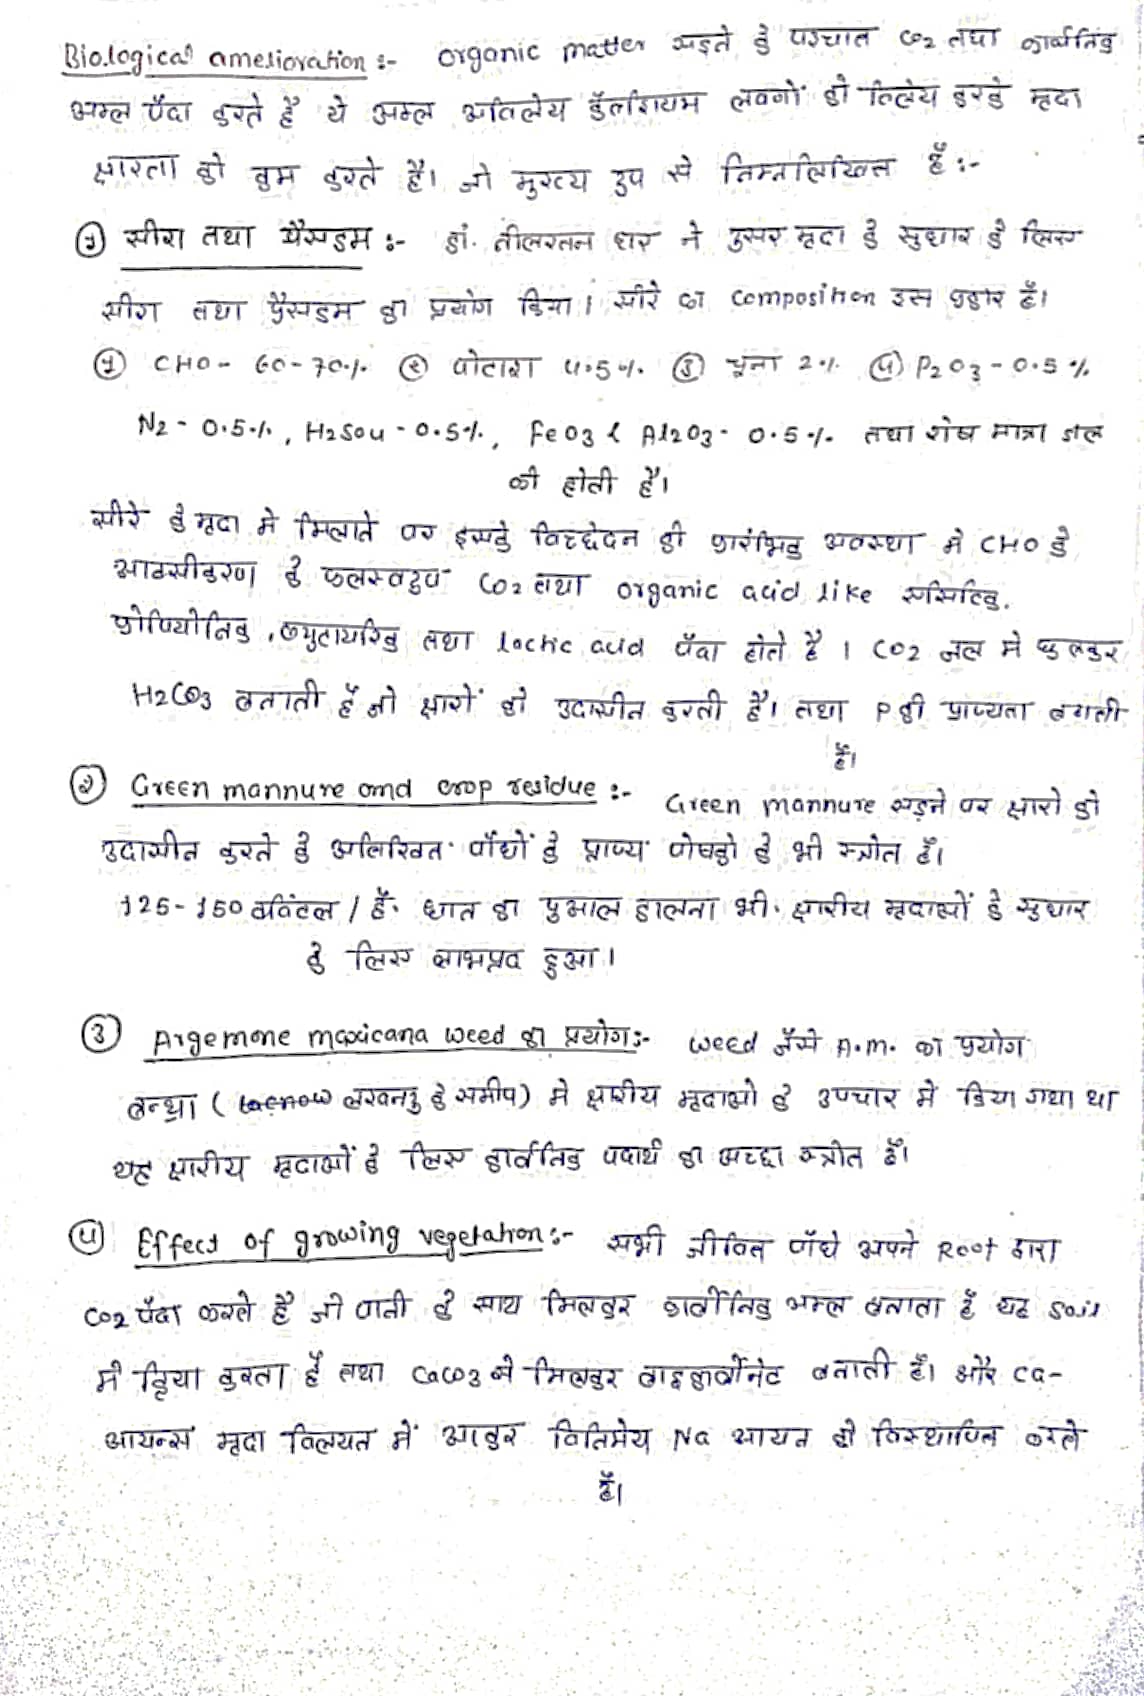 Biological amelioration :- organic matter सड़ने के पश्चात CO2 तथा कार्बनिक
अम्ल पैदा करते है ये अम्ल अविलेय कैल्शियम लवणों को विलेय करके मृदा
क्षारता को कम करते है। जो मुख्य रुप से निम्नलिखित हैं :-
① सीरा तथा प्रैसडम :- डॉ. नीलरतन धर ने ऊसर मृदा के सुधार के लिए
सीरा तथा प्रैसडम का प्रयोग किया। सीरे का composition इस प्रकार है।
① CHO - 60-70% ② पोटाश 4.5% ③ चूना 2% ④ P2O3 - 0.5%
N2 - 0.5%, H2SO4 - 0.5%, FeO3 & Al2O3 - 0.5% तथा शेष मात्रा जल
की होती है।
सीरे के मृदा मे मिलाने पर इसके विच्छेदन की प्रारंभिक अवस्था मे CHO के
आक्सीकरण के फलस्वरुप CO2 तथा organic acid like एसिटिक,
प्रोपियोनिक, ब्युटायरिक तथा lactic acid पैदा होते है । CO2 जल मे घुलकर
H2CO3 बनाती हैं जो क्षारों को उदासीन करती है। तथा P की प्राप्यता बढाती
है।
② Green mannure and crop residue :- Green mannure सड़ने पर क्षारो को
उदासीन करने के अतिरिक्त पौधों के प्राप्य पोषको के भी स्त्रोत हैं।
125-150 क्विंटल / हैं. धान का पुआल डालना भी क्षारीय मृदाओं के सुधार
के लिए लाभप्रद हुआ।
③ Argemone maxicana weed का प्रयोग :- weed जैसे A.m. का प्रयोग
बन्थ्रा ( लखनऊ के समीप) मे क्षारीय मृदाओ के उपचार मे किया गया था
यह क्षारीय मृदाओं के लिए कार्बनिक पदार्थ का अच्छा स्त्रोत है।
④ Effect of growing vegetation :- सभी जीवित पौधे अपने Root द्वारा
CO2 पैदा करते है जो पानी के साथ मिलकर कार्बोनिक अम्ल बनाता है यह soil
में क्रिया करता है तथा CaCO3 से मिलकर बाइकार्बोनेट बनाती है। और Ca-
आयन्स मृदा विलयन में आकर विनिमेय Na आयन को विस्थापित करते
हैं।